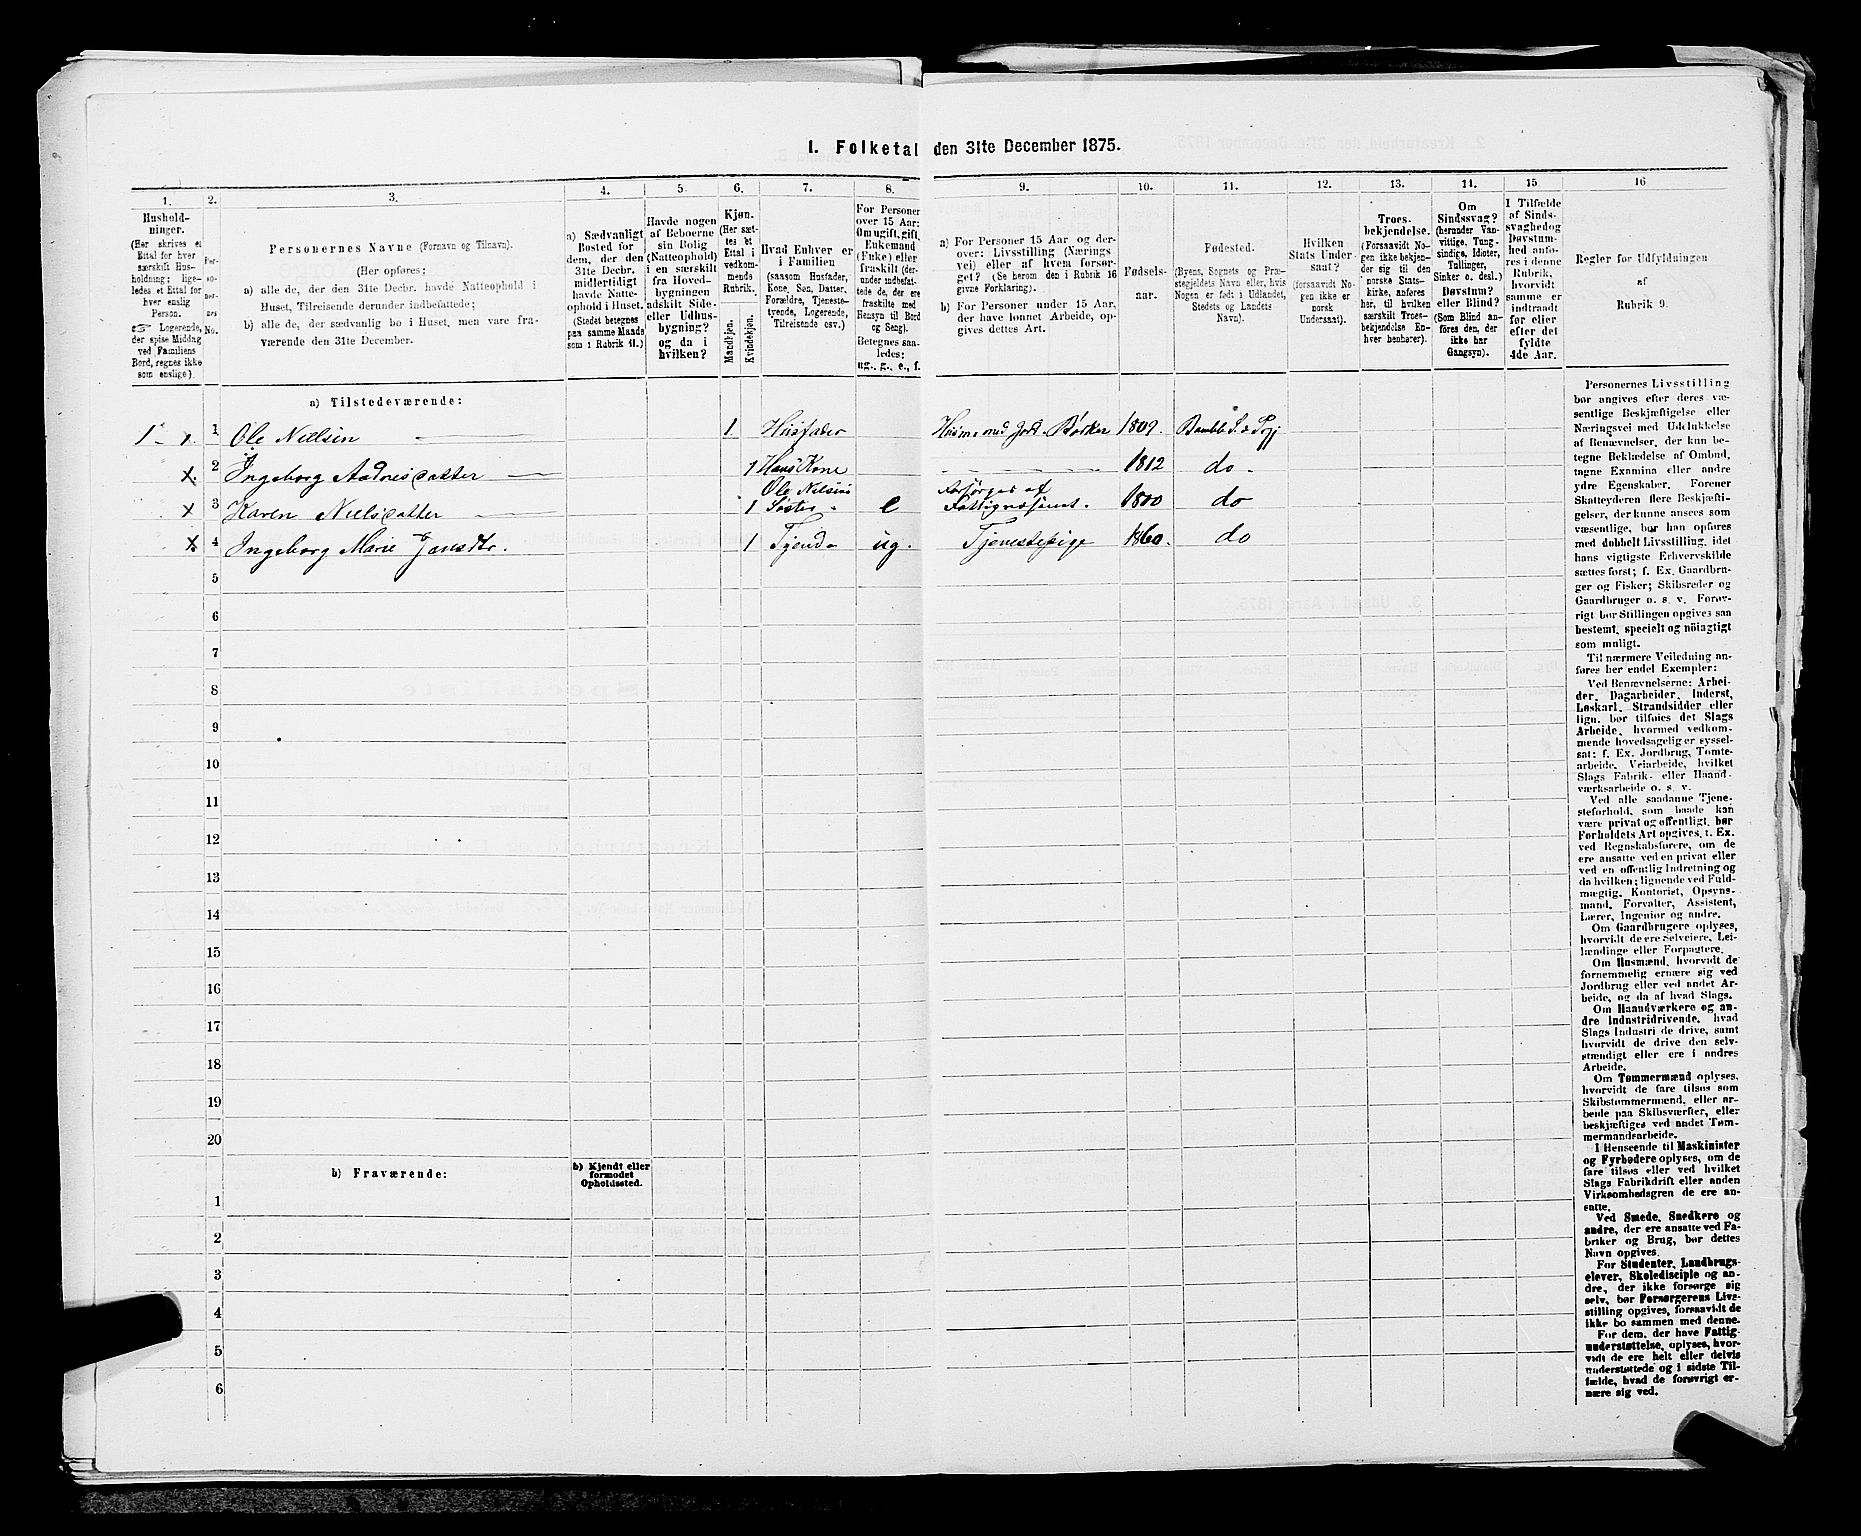 1. Folketal den 31te December 1875.
1. 2. 3. 4. 5. 6. 7. 8. 9. 10. 11. 12. 13. 14. 15 16
Hushold-
ninger.
(Her skrives et
Ettal for hver
særskilt Hus-
holdning; lige-
ledes et Ettal for
hver enslig
Person.
☞ Logerende,
der spise Middag
ved Familiens
Bord, regnes ikke
som enslige).
Per-
so-
ner-
nes
No.
Personernes Navne (Fornavn og Tilnavn).
(Her opføres:
a) alle de, der den 31te Decbr. havde Natteophold i
Huset, Tilreisende derunder indbefattede;
b) alle de, der sædvanlig bo i Huset, men vare fra-
værende den 31te December.
a) Sædvanligt
Bosted for
dem, der den
31te Decbr.
midlertidigt
havde Natte-
ophold i Huset.
(Stedet betegnes
paa samme Maade
som i Rubrik 11.)
Havde nogen
af Beboerne
sin Bolig
(Natteophold)
i en særskilt
fra Hoved-
bygningen
adskilt Side-
eller Udhus-
bygning?
og da i
hvilken?
Kjøn.
(Her sæt-
tes et
Ettal i
vedkom-
mende
Rubrik.
Mandkjøn.
Kvindekjøn.
Hvad Enhver er
i Familien
(saasom Husfader,
Kone, Søn, Datter,
Forældre, Tjeneste-
tyende, Logerende,
Tilreisende osv.)
For Personer
over 15 Aar:
Om ugift, gift,
Enkemand
(Enke) eller
fraskilt (der-
under indbefat-
tede de, der ere
fraskilte med
Hensyn til Bord
og Seng).
Betegnes saa-
ledes:
ug., g., e., f.
a) For Personer 15 Aar og der-
over: Livsstilling (Nærings-
vei) eller af hvem forsør-
get? (Se herom den i Rubrik 16
givne Forklaring).
b) For Personer under 15 Aar,
der have lønnet Arbeide, op-
gives dettes Art.
Fødsels-
aar.
Fødested.
(Byens, Sognets og Præ-
stegjeldets Navn eller, hvis
Nogen er født i Udlandet,
Stedets og Landets
Navn).
Hvilken
Stats Under-
saat?
(forsaavidt No-
gen ikke er
norsk
Undersaat).
Troes-
bekjendelse.
(Forsaavidt No-
gen ikke bekjen-
der sig til den
norske Stats-
kirke, anføres
her, til hvilken
særskilt Troes-
bekjendelse En-
hver henhører).
Om
Sindssvag?
(herunder Van-
vittige, Tung-
sindige, Idioter,
Tullinger,
Sinker o. desl.)
Døvstum?
eller Blind?
(Som Blind an-
føres den, der
ikke har
Gangsyn).
I Tilfælde
af Sinds-
svaghed og
Døvstum-
hed anfø-
res i denne
Rubrik,
hvorvidt
samme er
indtraadt
før eller
efter det
fyldte
4de Aar.
Regler for Udfyldningen
af
Rubrik 9.
a) Tilstedeværende:
1 1. 1 Ole Nielsen 1 Husfader Husm. med Jord. 1809. Bamble S. & Pgj
x. 2 Ingeborg Aadnesdatter 1 Hans Kone 1812 do
x 3 Karen Nielsdatter 1 Ole Nielsens Søster e Forsørges af Fattigvæsenet. 1800 do
x. 4 Ingeborg Marie Jansdtr. 1 Tjende ug. Tjenestepige 1860. do
5
6
7
8
9
10
11
12
13
14
15
16
17
18
19
20
b) Fraværende:
b) Kjendt eller
formodet
Opholdssted.
1
2
3
4
5
6
Personernes Livsstilling
bør angives efter deres væ-
sentlige Beskjæftigelse eller
Næringsvei med Udelukkelse
af Benævnelser, der kun be-
tegne Beklædelse af Ombud,
tagne Examina eller andre
ydre Egenskaber. Forener
Skatteyderen flere Beskjæfti-
gelser, der kunne ansees som
væsentlige, bør han opføres
med dobbelt Livsstilling, idet
hans vigtigste Erhvervskilde
sættes først; f. Ex. Gaardbru-
ger og Fisker; Skibsreder og
Gaardbruger o. s. v. Forøv-
rigt bør Stillingen opgives saa
bestemt, specielt og nøiagtigt
som muligt.
Til nærmere Veiledning an-
føres her endel Exempler:
Ved Benævnelserne: Arbei-
der, Dagarbeider, Inderst,
Løskarl, Strandsidder eller
lign. bør tilføies det Slags
Arbeide, hvormed vedkom-
mende hovedsagelig er syssel-
sat; f. Ex. Jordbrug, Tomte-
arbeide, Veiarbeide, hvilket
Slags Fabrik- eller Haand-
værksarbeide o. s. v.
Ved alle saadanne Tjene-
steforhold, som baade kan
være privat og offentligt, bør
Forholdets Art opgives, t. Ex.
ved Regnskabsførere, om de
ere ansatte ved en privat eller
ved en offentlig Indretning og
da hvilken; lignende ved Fuld-
mægtig, Kontorist, Opsyns-
mand, Forvalter, Assistent,
Lærer, Ingeniør og andre.
Om Gaardbrugere oplyses,
hvorvidt de ere Selveiere, Lei-
lændinge eller Forpagtere.
Om Husmænd, hvorvidt de
fornemmelig ernære sig ved
Jordbrug eller ved andet Ar-
beide, og da af hvad Slags.
Om Haandværkere og an-
dre Industridrivende, hvad
Slags Industri de drive, samt
hvorvidt de drive den selv-
stændigt eller ere i andres
Arbeide.
Om Tømmermænd oplyses,
hvorvidt de fare tilsøs som
Skibstømmermænd, eller ar-
beide paa Skibsværfter, eller
beskjæftiges ved andet Tøm-
mermandsarbeide.
I Henseende til Maskinister
og Fyrbødere oplyses, om de
fare tilsøs eller ved hvilket
Slags Fabrikdrift eller anden
Virksomhedsgren de ere an-
satte.
Ved Smede, Snedkere og
andre, der ere ansatte ved Fa-
briker og Brug, bør dettes
Navn opgives.
For Studenter, Landbrugs-
elever, Skoledisciple og an-
dre, der ikke forsørge sig
selv, bør Forsørgerens Livs-
stilling opgives, forsaavidt de
ikke bo sammen med denne.
For dem, der have Fattig-
understøttelse, oplyses, hvor-
vidt de ere helt eller delvis
understøttede og i sidste Til-
fælde, hvad de forøvrigt er-
nære sig ved.